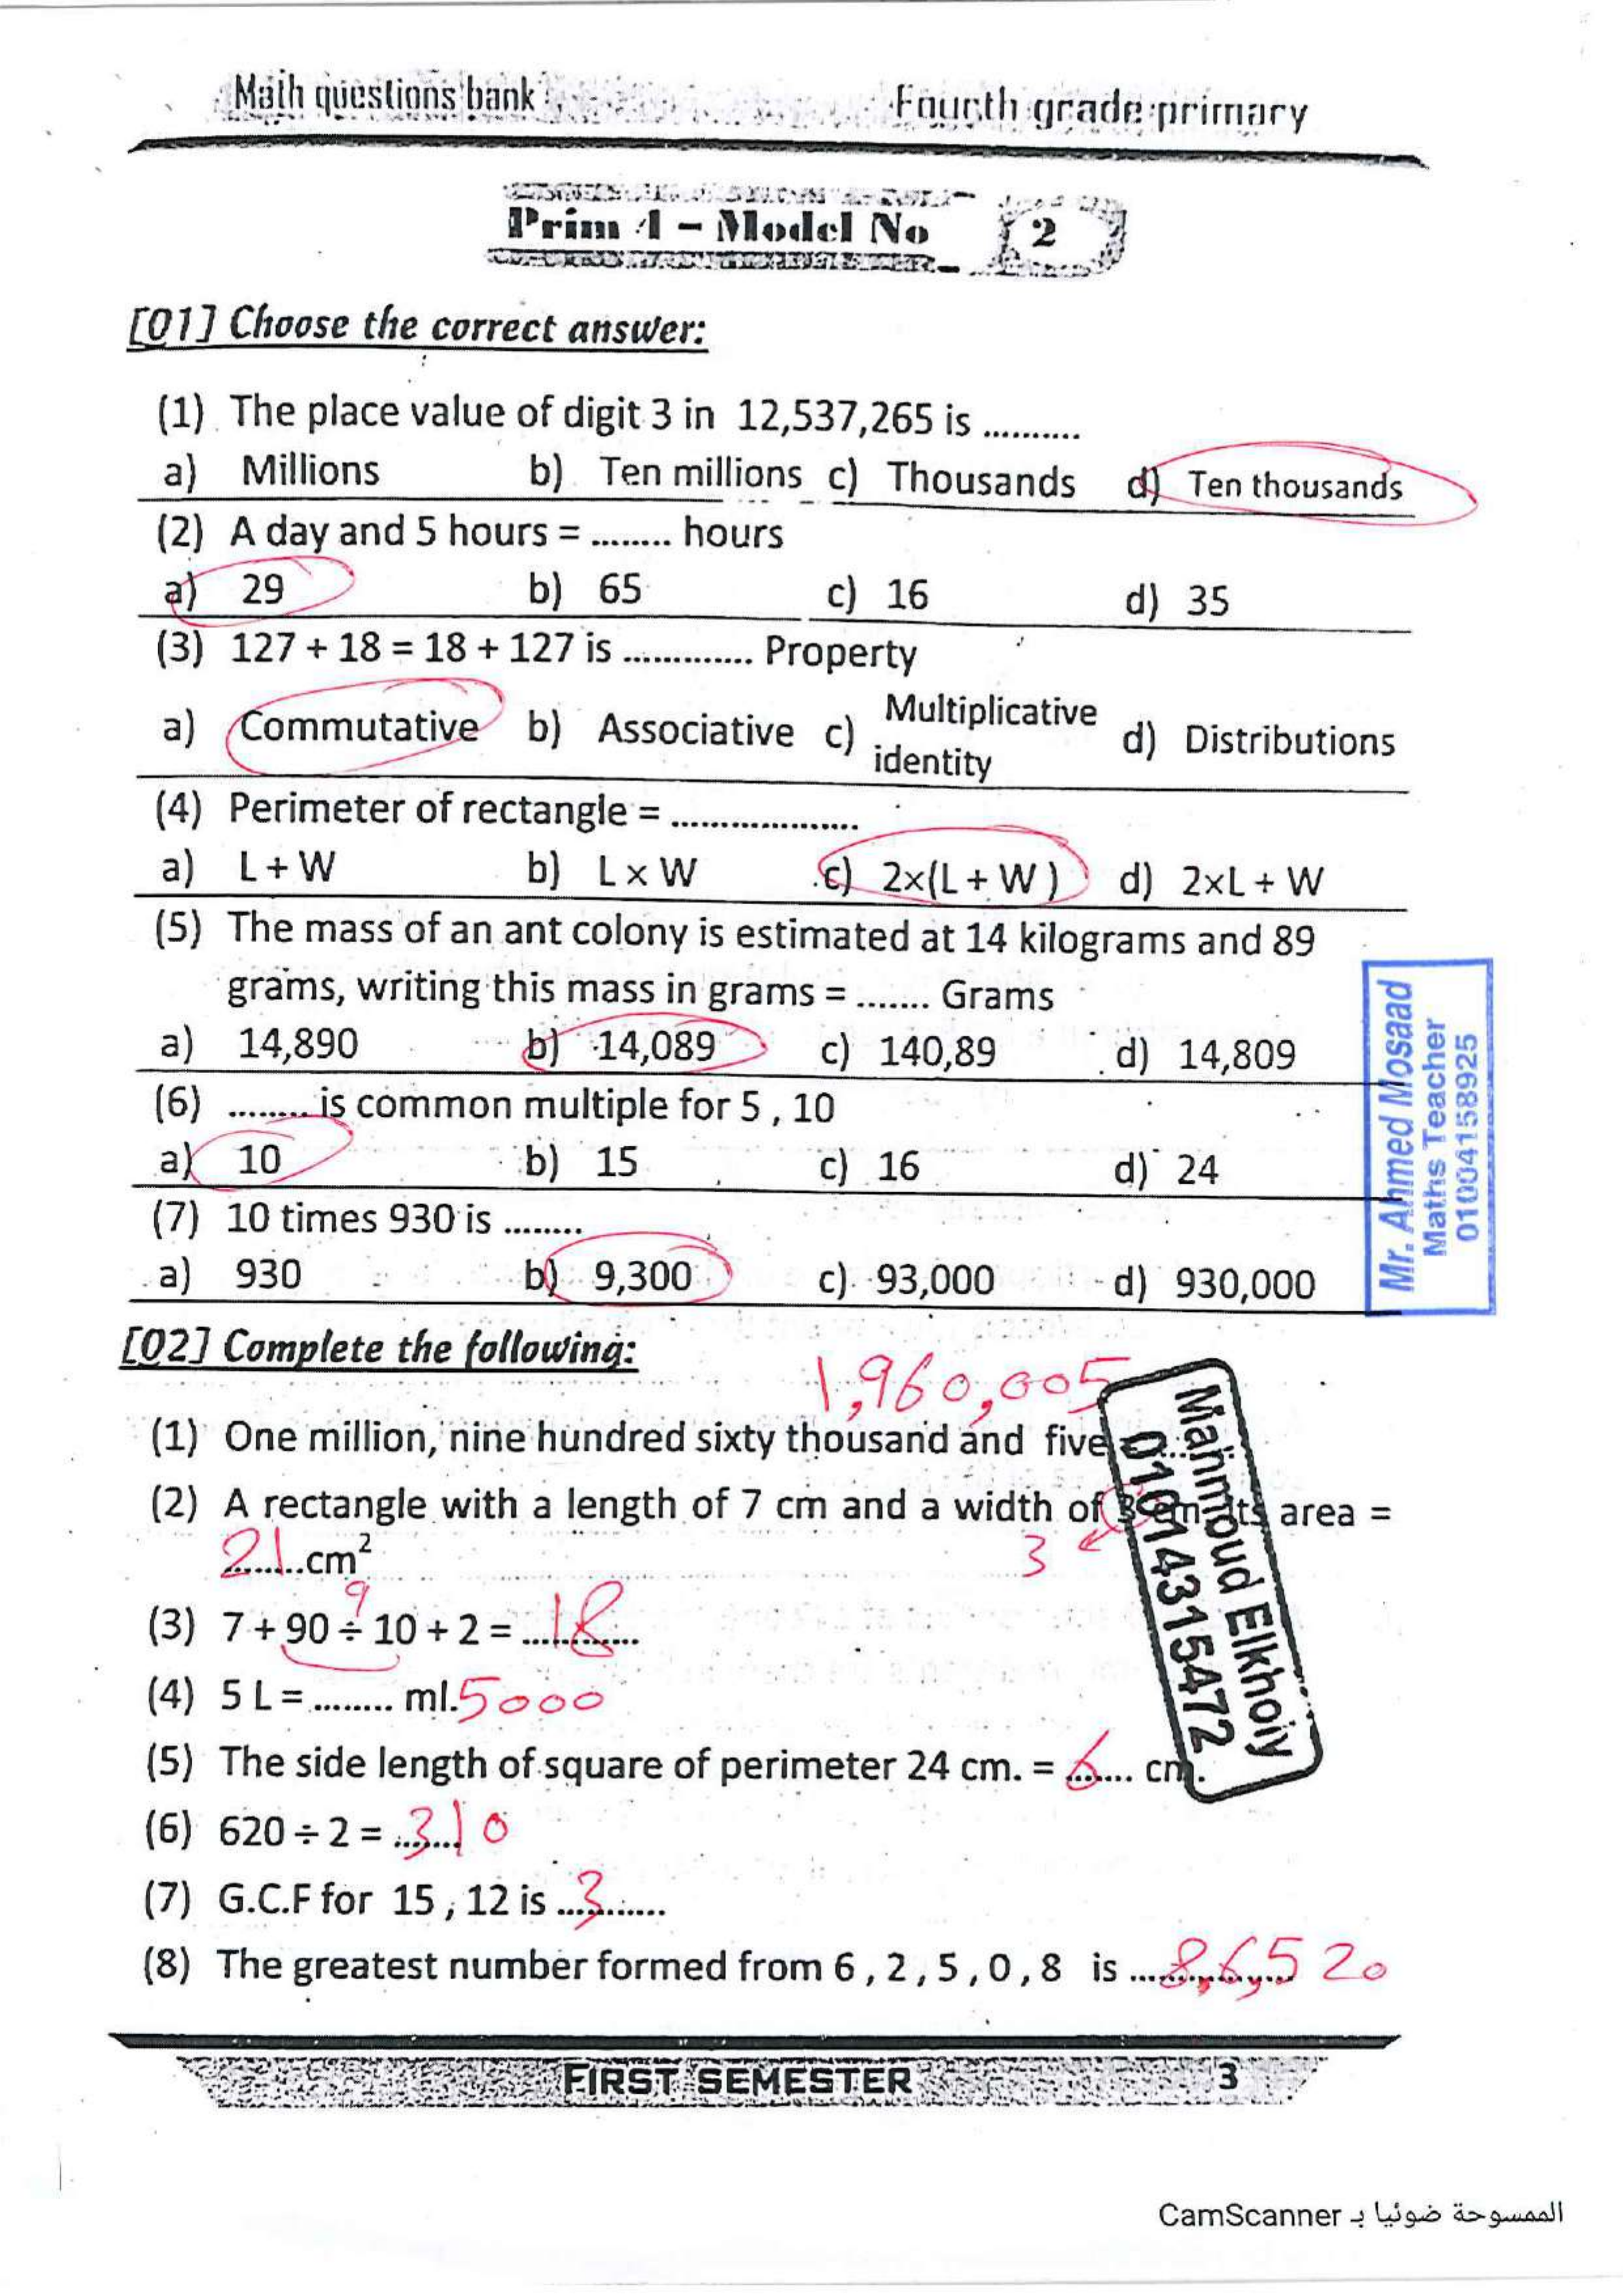 Math questions bank
Fourth grade primary
Prim 4 – Model No 2
[Q1] Choose the correct answer:
(1) The place value of digit 3 in 12,537,265 is ..........
a) Millions b) Ten millions c) Thousands d) Ten thousands
(2) A day and 5 hours = ........ hours
a) 29 b) 65 c) 16 d) 35
(3) 127 + 18 = 18 + 127 is ............. Property
a) Commutative b) Associative c) Multiplicative identity d) Distributions
(4) Perimeter of rectangle = ...................
a) L + W b) L × W c) 2×(L + W ) d) 2×L + W
(5) The mass of an ant colony is estimated at 14 kilograms and 89
grams, writing this mass in grams = ....... Grams
a) 14,890 b) 14,089 c) 140,89 d) 14,809
(6) ........ is common multiple for 5 , 10
a) 10 b) 15 c) 16 d) 24
(7) 10 times 930 is ........
a) 930 b) 9,300 c) 93,000 d) 930,000
Mr. Ahmed Mosaad
Maths Teacher
01004158925
[Q2] Complete the following:
1,960,005
(1) One million, nine hundred sixty thousand and five
(2) A rectangle with a length of 7 cm and a width of 3 cm its area =
21 cm²
3
9
(3) 7 + 90 ÷ 10 + 2 = 18
(4) 5 L = ........ ml. 5000
(5) The side length of square of perimeter 24 cm. = 6 cm.
(6) 620 ÷ 2 = 310
(7) G.C.F for 15 , 12 is 3
(8) The greatest number formed from 6 , 2 , 5 , 0 , 8 is 8,6,520
Mahmoud Elkholy
01014315472
FIRST SEMESTER 3
الممسوحة ضوئيا بـ CamScanner